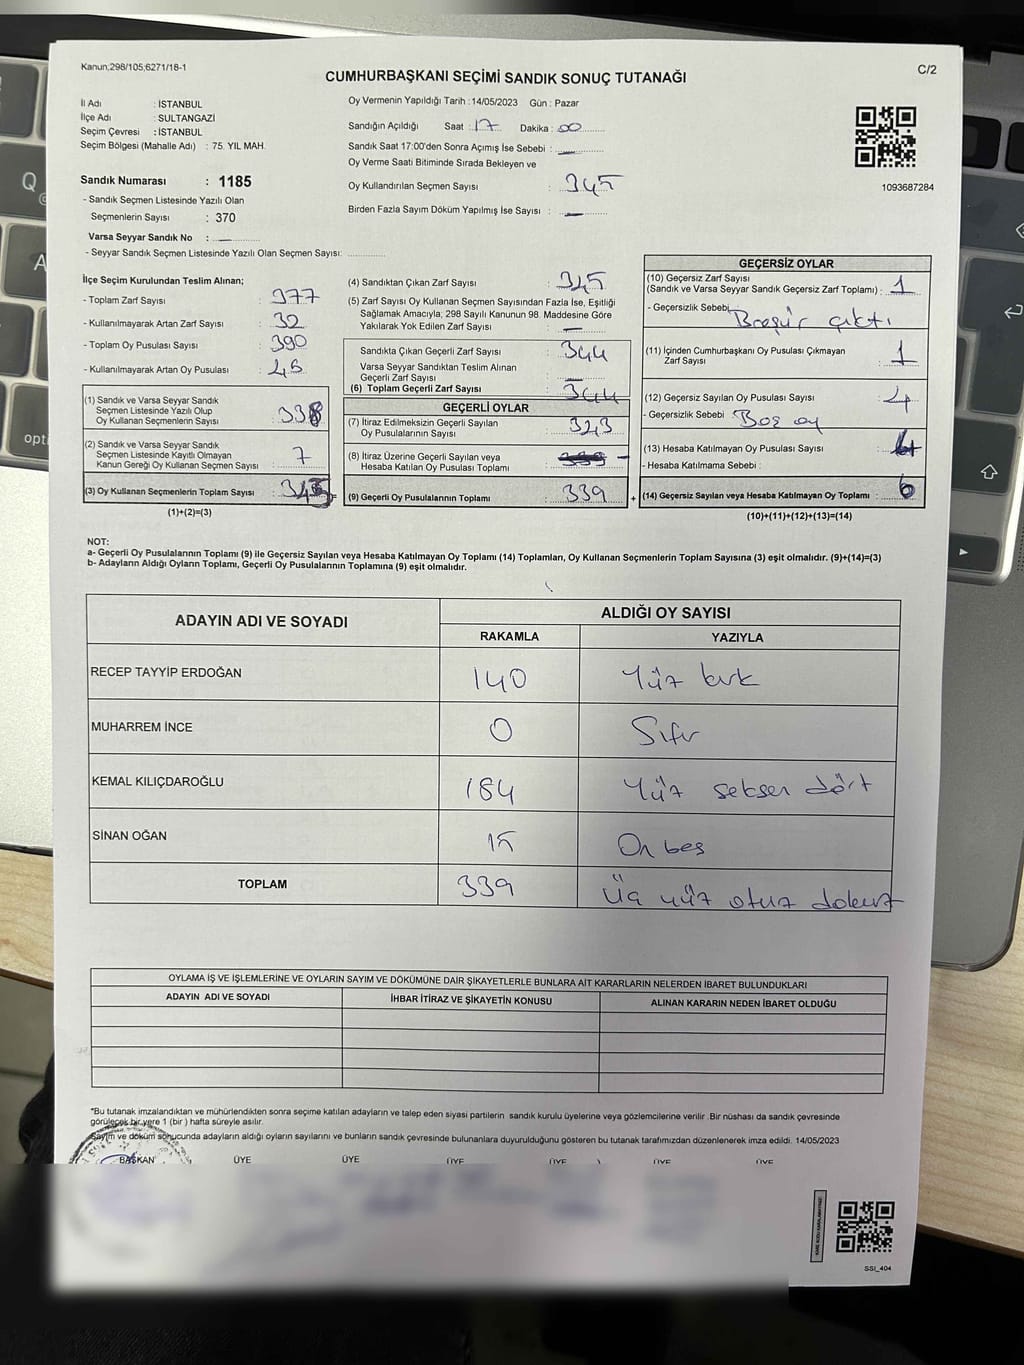 Kanun;298/105;6271/18-1
C/2
CUMHURBAŞKANI SEÇİMİ SANDIK SONUÇ TUTANAĞI
İl Adı : İSTANBUL
İlçe Adı : SULTANGAZİ
Seçim Çevresi : İSTANBUL
Seçim Bölgesi (Mahalle Adı) : 75. YIL MAH.
Sandık Numarası : 1185
- Sandık Seçmen Listesinde Yazılı Olan
Seçmenlerin Sayısı : 370
Varsa Seyyar Sandık No : —
- Seyyar Sandık Seçmen Listesinde Yazılı Olan Seçmen Sayısı:
Oy Vermenin Yapıldığı Tarih :14/05/2023 Gün : Pazar
Sandığın Açıldığı Saat : 17 Dakika : 00
Sandık Saat 17:00'den Sonra Açımış İse Sebebi : —
Oy Verme Saati Bitiminde Sırada Bekleyen ve
Oy Kullandırılan Seçmen Sayısı : 345
Birden Fazla Sayım Döküm Yapılmış İse Sayısı : —
1093687284
İlçe Seçim Kurulundan Teslim Alınan;
- Toplam Zarf Sayısı : 377
- Kullanılmayarak Artan Zarf Sayısı : 32
- Toplam Oy Pusulası Sayısı : 390
- Kullanılmayarak Artan Oy Pusulası : 45
(1) Sandık ve Varsa Seyyar Sandık
Seçmen Listesinde Yazılı Olup
Oy Kullanan Seçmenlerin Sayısı : 338
(2) Sandık ve Varsa Seyyar Sandık
Seçmen Listesinde Kayıtlı Olmayan
Kanun Gereği Oy Kullanan Seçmen Sayısı : 7
(3) Oy Kullanan Seçmenlerin Toplam Sayısı : 345 =
(1)+(2)=(3)
(4) Sandıktan Çıkan Zarf Sayısı : 345
(5) Zarf Sayısı Oy Kullanan Seçmen Sayısından Fazla İse, Eşitliği
Sağlamak Amacıyla; 298 Sayılı Kanunun 98. Maddesine Göre
Yakılarak Yok Edilen Zarf Sayısı : —
Sandıkta Çıkan Geçerli Zarf Sayısı : 344
Varsa Seyyar Sandıktan Teslim Alınan
Geçerli Zarf Sayısı : —
(6) Toplam Geçerli Zarf Sayısı : 344
GEÇERLİ OYLAR
(7) İtiraz Edilmeksizin Geçerli Sayılan
Oy Pusulalarının Sayısı : 323
(8) İtiraz Üzerine Geçerli Sayılan veya
Hesaba Katılan Oy Pusulası Toplamı : —
(9) Geçerli Oy Pusulalarının Toplamı : 339 +
GEÇERSİZ OYLAR
(10) Geçersiz Zarf Sayısı
(Sandık ve Varsa Seyyar Sandık Geçersiz Zarf Toplamı) : 1
- Geçersizlik Sebebi Broşür çıktı
(11) İçinden Cumhurbaşkanı Oy Pusulası Çıkmayan
Zarf Sayısı : 1
(12) Geçersiz Sayılan Oy Pusulası Sayısı : 4
- Geçersizlik Sebebi Boş oy
(13) Hesaba Katılmayan Oy Pusulası Sayısı :
- Hesaba Katılmama Sebebi :
(14) Geçersiz Sayılan veya Hesaba Katılmayan Oy Toplamı : 6
(10)+(11)+(12)+(13)=(14)
NOT:
a- Geçerli Oy Pusulalarının Toplamı (9) ile Geçersiz Sayılan veya Hesaba Katılmayan Oy Toplamı (14) Toplamları, Oy Kullanan Seçmenlerin Toplam Sayısına (3) eşit olmalıdır. (9)+(14)=(3)
b- Adayların Aldığı Oyların Toplamı, Geçerli Oy Pusulalarının Toplamına (9) eşit olmalıdır.
ADAYIN ADI VE SOYADI ALDIĞI OY SAYISI
RAKAMLA YAZIYLA
RECEP TAYYİP ERDOĞAN 140 Yüz kırk
MUHARREM İNCE 0 Sıfır
KEMAL KILIÇDAROĞLU 184 Yüz seksen dört
SİNAN OĞAN 15 On beş
TOPLAM 339 Üç yüz otuz dokuz
OYLAMA İŞ VE İŞLEMLERİNE VE OYLARIN SAYIM VE DÖKÜMÜNE DAİR ŞİKAYETLERLE BUNLARA AİT KARARLARIN NELERDEN İBARET BULUNDUKLARI
ADAYIN ADI VE SOYADI İHBAR İTİRAZ VE ŞİKAYETİN KONUSU ALINAN KARARIN NEDEN İBARET OLDUĞU
*Bu tutanak imzalandıktan ve mühürlendikten sonra seçime katılan adayların ve talep eden siyasi partilerin sandık kurulu üyelerine veya gözlemcilerine verilir .Bir nüshası da sandık çevresinde
görülecek bir yere 1 (bir ) hafta süreyle asılır.
Sayım ve döküm sonucunda adayların aldığı oyların sayılarını ve bunların sandık çevresinde bulunanlara duyurulduğunu gösteren bu tutanak tarafımızdan düzenlenerek imza edildi. 14/05/2023
BAŞKAN ÜYE ÜYE ÜYE ÜYE ÜYE ÜYE
SSI_404